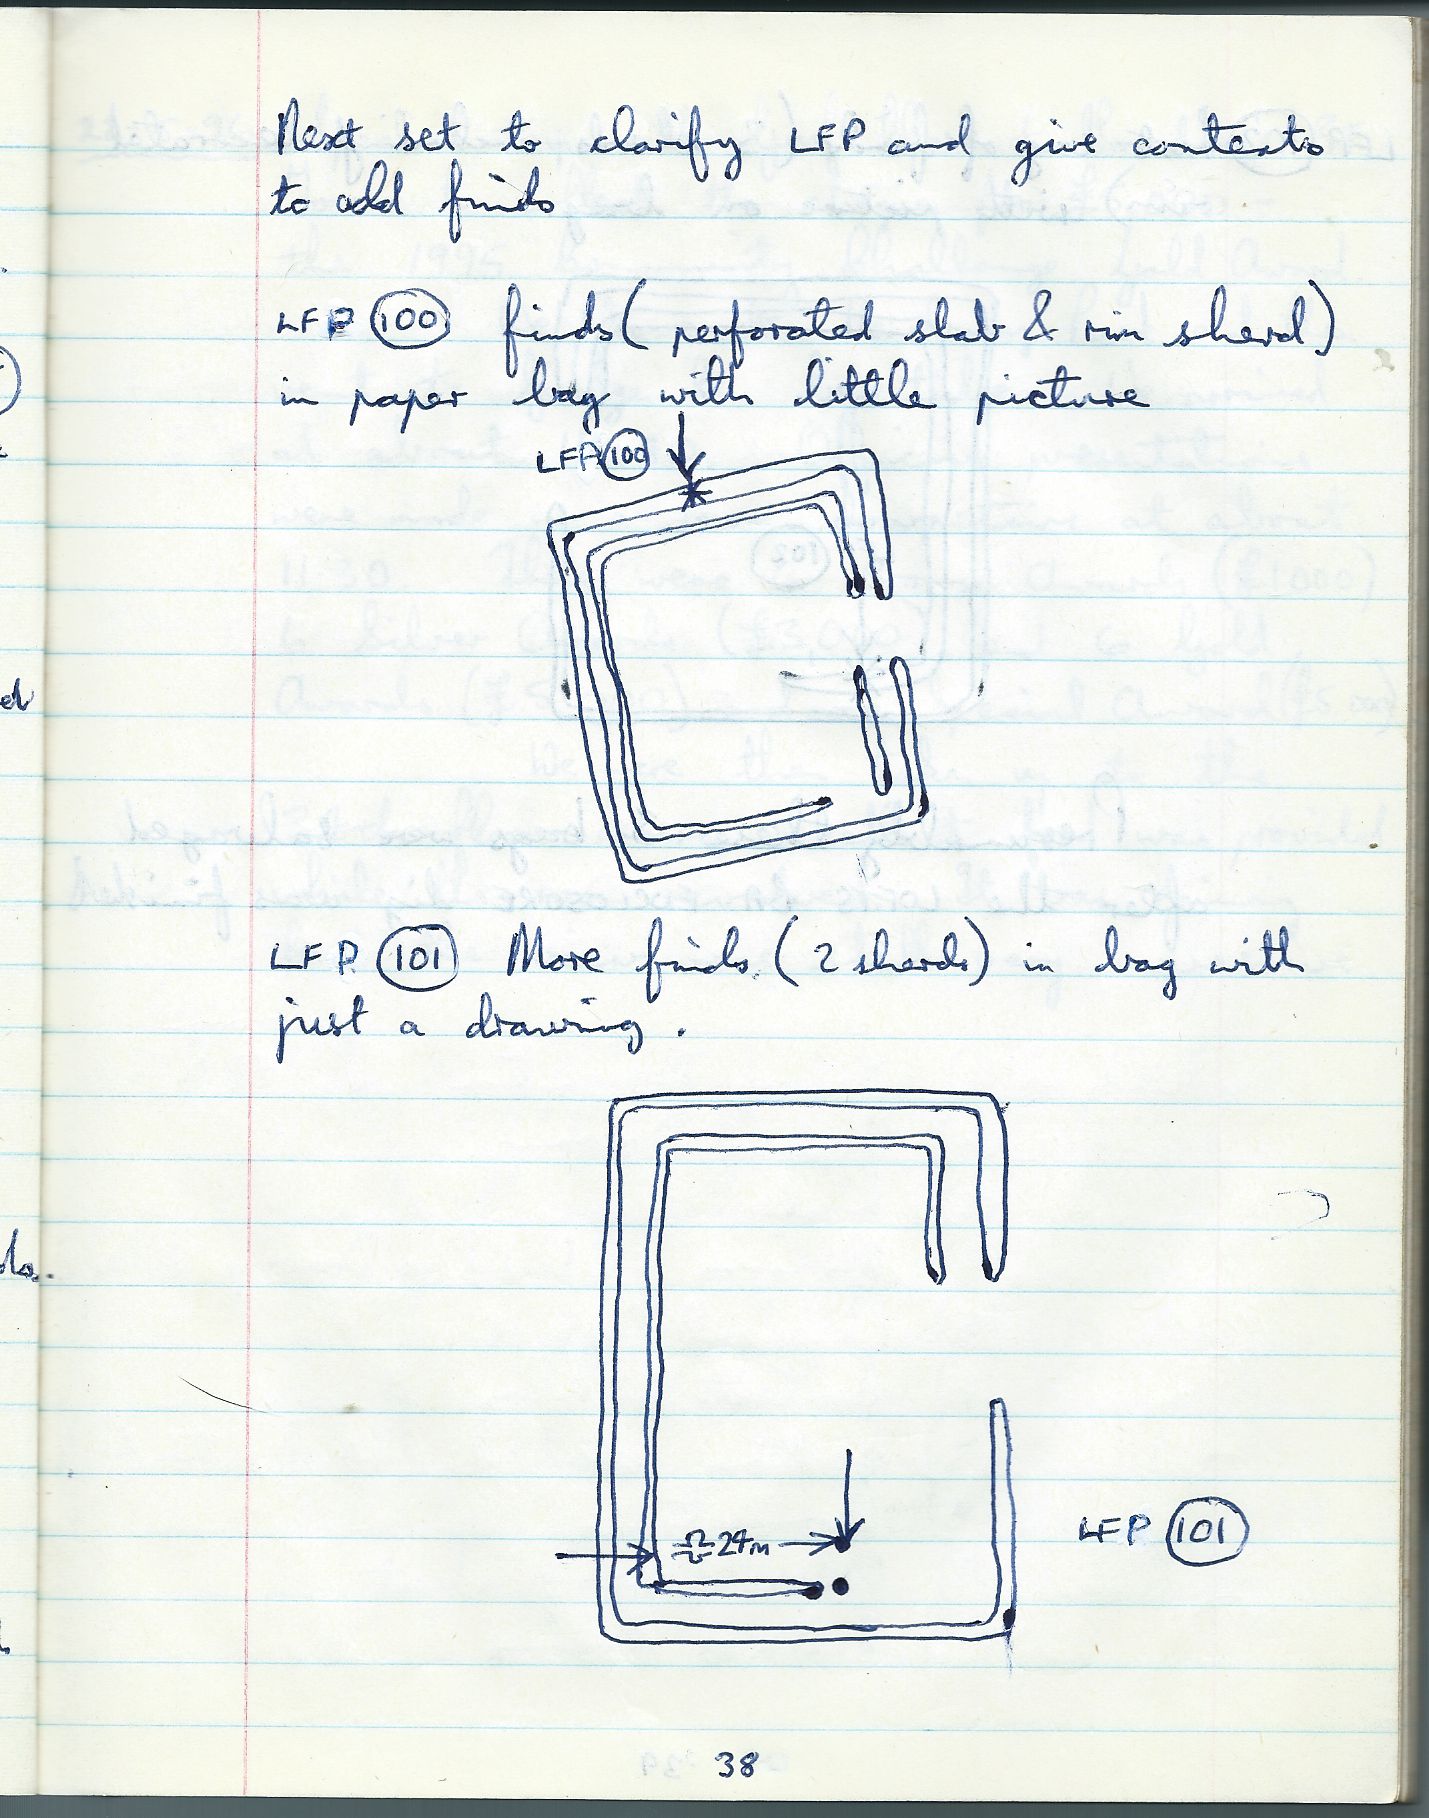 Next set to clarify LFP and give contexts
to odd finds
LFP 100 finds (perforated slab & rim sherd)
in paper bag with little picture
LFP 100
LFP. 101 More finds. (2 sherds) in bag with
just a drawing.
24m
LFP 101
38